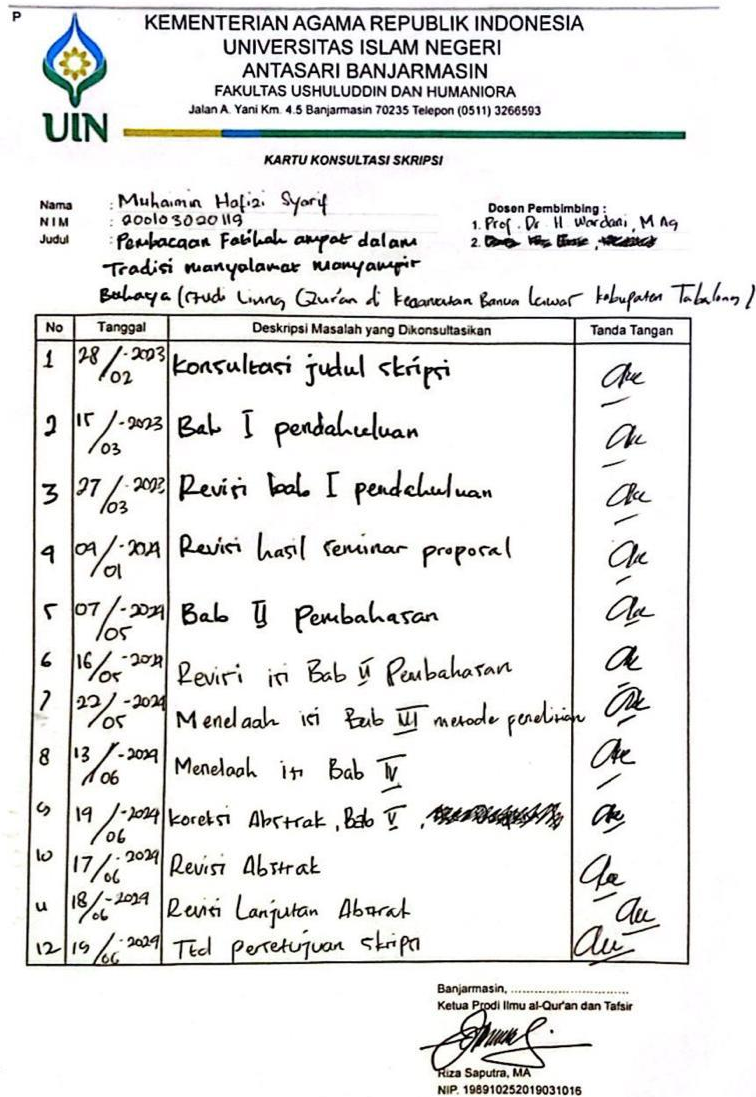 P
KEMENTERIAN AGAMA REPUBLIK INDONESIA
UNIVERSITAS ISLAM NEGERI
ANTASARI BANJARMASIN
FAKULTAS USHULUDDIN DAN HUMANIORA
Jalan A. Yani Km. 4.5 Banjarmasin 70235 Telepon (0511) 3266593
UIN
KARTU KONSULTASI SKRIPSI
Nama : Muhaimin Hafizi Syarif
NIM : 200103020119
Judul : Pembacaan Fatihah ampat dalam
Tradisi manyalamat manyampir
Bahaya (Studi Living Qur'an di Kecamatan Banua Lawas kabupaten Tabalong)
Dosen Pembimbing :
1. Prof. Dr. H. Wardani, M Ag
2.
No Tanggal Deskripsi Masalah yang Dikonsultasikan Tanda Tangan
1 28/02-2023 Konsultasi judul skripsi
2 15/03-2023 Bab I pendahuluan
3 27/03-2023 Revisi bab I pendahuluan
4 09/01-2024 Revisi hasil seminar proposal
5 07/05-2024 Bab II Pembahasan
6 16/05-2024 Revisi isi Bab II Pembahasan
7 22/05-2024 Menelaah isi Bab III metode penelitian
8 13/06-2024 Menelaah isi Bab IV
9 19/06-2024 Koreksi Abstrak, Bab V,
10 17/06-2024 Revisi Abstrak
11 18/06-2024 Revisi Lanjutan Abstrak
12 19/06-2024 Ttd persetujuan skripsi
Banjarmasin, ..............................
Ketua Prodi Ilmu al-Qur'an dan Tafsir
Riza Saputra, MA
NIP. 198910252019031016